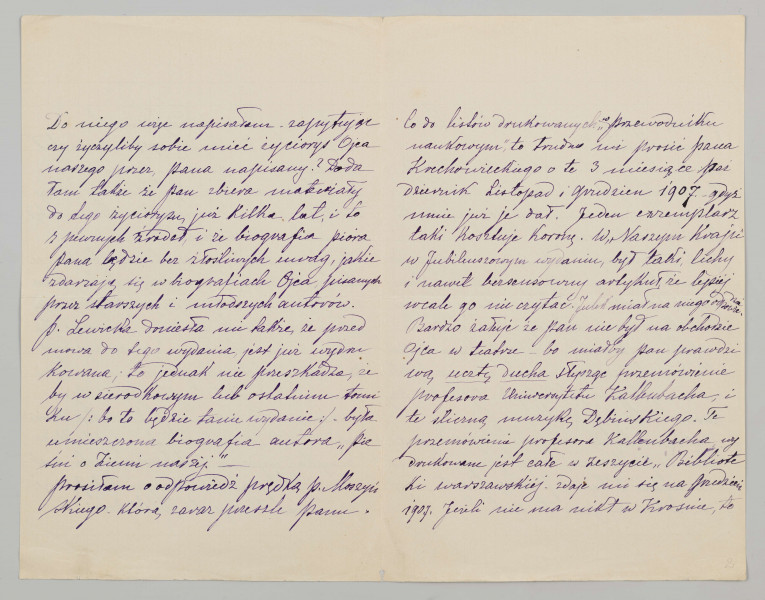 Do niego więc napisałam - zapytując
czy życzyliby sobie mieć życiorys Ojca
naszego przez Pana napisany? Doda
łam także że pan zbiera materiały
do tego życiorysu, już kilka lat, i to
z pewnych źródeł, i że biografia pióra
pana będzie bez złośliwych uwag, jakie
zdarzają się w biografiach Ojca pisanych
przez starszych i młodszych autorów.
p. Lewicka doniosła mi także, że przed
mowa do tego wydania jest już wydru
kowana; to jednak nie przeszkadza, że
by w sierodkowym lub ostatnim tomi
ku /: bo to będzie tanie wydanie :/ - była
umieszczona biografia autora „Pie
śni o Ziemi naszej." —
Prosiłam o odpowiedź prędką p. Moszyń
skiego - którą, zaraz prześlę Panu.
Co do listów drukowanych „Przewodniku
naukowym" to trudno mi prosić pana
Krechowieckiego o te 3 miesiące Paź
dziernik Listopad i Grudzień 1907 - gdyż
mnie już je dał. Jeden exzemplarz
taki kosztuje Koronę. W „Naszym Kraju"
w Jubileuszowym wydaniu, był taki, lichy
i nawet bezsensowny artykuł że lepiej
wcale go nie czytać. miał na niego
Bardzo żałuję że pan nie był na obchodzie
Ojca w teatrze - bo miałby pan prawdzi
wą ucztę ducha słysząc przemówienie
profesora Uniwersytetu Kallenbacha, i
te śliczną muzykę Dębińskiego. Te
przemówienie profesora Kallenbacha, wy
drukowane jest całe w zeszycie „Bibliote
ki warszawskiej - zdaje mi się na Grudzień
1907. Jeżeli nie ma nikt w Krośnie, to